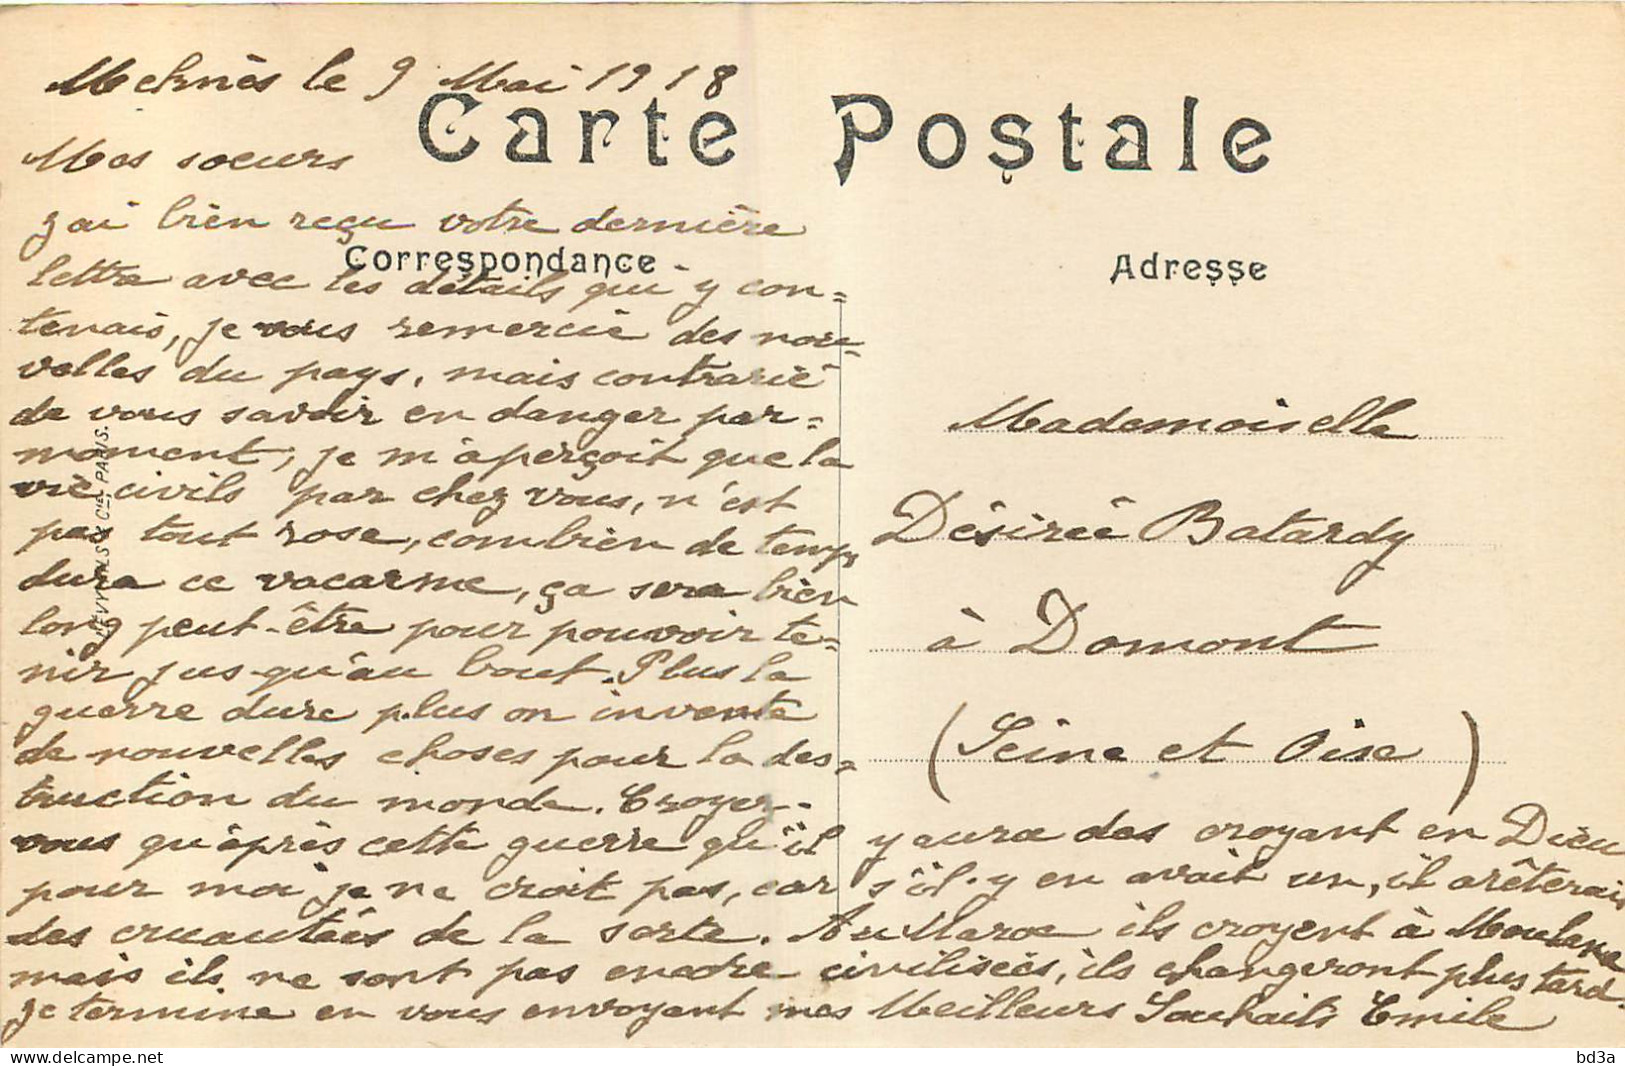 Meknès le 9 Mai 1918
Carte Postale
Mes soeurs
j'ai bien reçu votre dernière
Correspondance
lettre avec les détails qui y con=
tenais, je vous remercie des nou-
velles du pays, mais contrarié
de vous savoir en danger par=
moment, je m'aperçoit que la
vie civils par chez vous, n'est
pas tout rose, combien de temps
dura ce vacarme, ça sera bien
long peut-être pour pouvoir te=
nir jus-qu'au bout. Plus la
guerre dure plus on invente
de nouvelles choses pour la des=
truction du monde. Croyer-
vous qu'après cette guerre qu'il y aura des croyant en Dieu
pour moi je ne croit pas, car s'il y en avait un, il arêterais
des cruautées de la sorte. Au Maroc ils croyent à Moulane
mais ils ne sont pas encore civilisées, ils changeront plus tard.
je termine en vous envoyant mes Meilleurs Souhaits Emile
Adresse
Mademoiselle
Désirée Batardy
à Domont
(Seine et Oise)
Cie PARIS.
bd3a